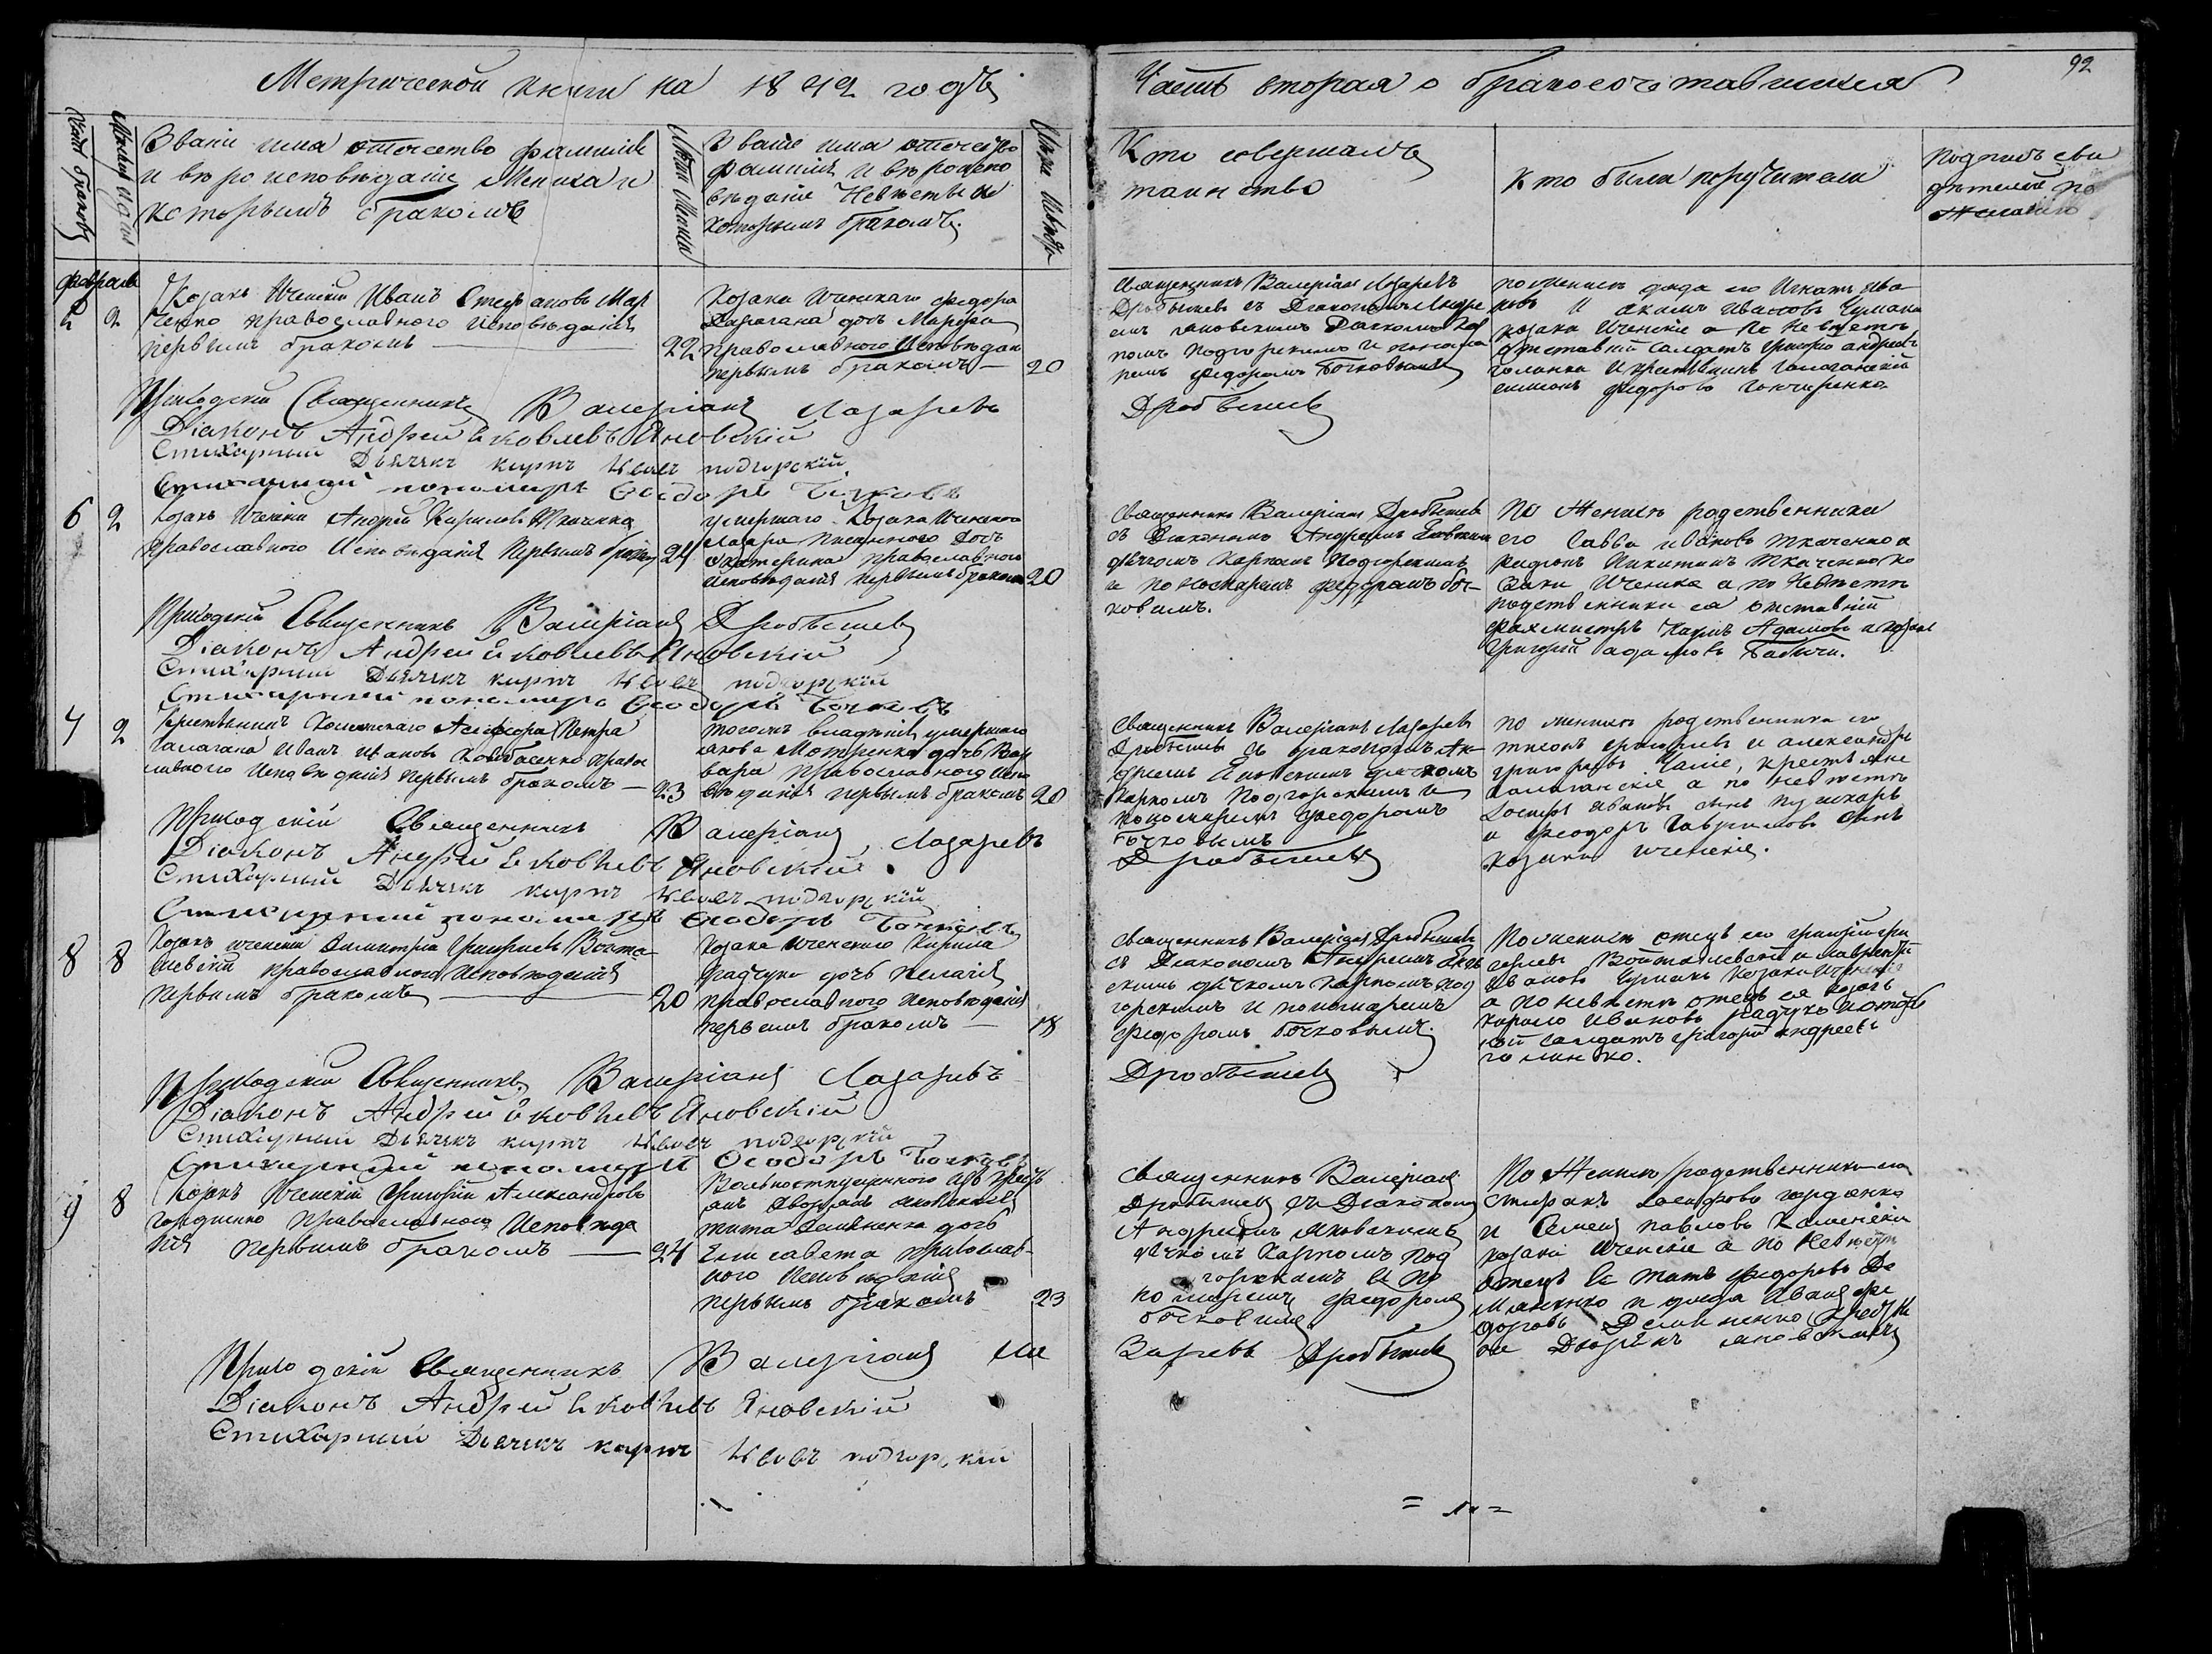 Метрической книги на 1842 годъ
Часть вторая о бракосочетавшихся
92
Счетъ браковъ
Мѣсяцъ
Званіе имя отечество фамилія
и вѣроисповѣданіе Жениха и
которымъ бракомъ
Лѣта Жениха
Званіе имя отечество
фамилія и вѣроиспо
вѣданіе Невѣсты и
которымъ бракомъ.
Лѣта Невѣсты
Кто совершалъ
таинство
Кто были поручители
Подпись сви
дѣтелей по
Желанію
Февраль
2
Козакъ Иченскій Иванъ Стефановъ Мар
ченко православного Исповѣданія
первымъ бракомъ
22
Козака Иченскаго Федора
Дарагана дочь Марфа
православного Исповѣдан
первымъ бракомъ
20
Священникъ Валеріанъ Лазаревъ
Дробышевъ съ Діакономъ Андре
емъ Яновскимъ Дьячкомъ Кар
помъ Подгорскимъ и понома
ремъ Федоромъ Бочковымъ
Дробышевъ
по женихѣ дяда его Игнатъ Ива
новъ и Акимъ Ивановъ Чумаки
козаки Иченскіе а по Невѣстѣ
отставній Салдатъ Григорій Андреевъ
голинко и крестьянинъ Галаганскій
Симонъ Федоровъ Гончаренко
Приходскій Священникъ Валеріанъ Лазаревъ
Діаконъ Андрей Яковлевъ Яновскій
Стихарный Дьячекъ Карпъ Ивовъ Подгорскій
Стихарный пономарь Феодоръ Бочковъ
6 2
Козакъ Иченскій Андрей Кириловъ Ткаченко
православного Исповѣданія первымъ бракомъ
24
умершаго Козака Иченского
Лазара Письменого дочь
Екатерина православного
исповѣданія первымъ бракомъ
20
Священникъ Валеріанъ Дробышевъ
съ Діакономъ Андреемъ Яновским
дячкомъ Карпомъ Подгорскимъ
и пономаремъ Федоромъ боч-
ковымъ.
По Женихѣ родственники
его Савва Ивановъ Ткаченко и
Родіонъ Никитинъ Ткаченко ко
заки Иченскіе а по Невѣстѣ
родственники ея отставній
фахмистръ Карпъ Адамовъ и козакъ
Григорій Адамовъ Бабичи.
Приходскій Священникъ Валеріанъ Дробышевъ
Діаконъ Андрей Яковлевъ Яновскій
Стихарный Дьячекъ Карпъ Ивовъ Подгорскій
Стихарный пономарь Феодоръ Бочковъ
7 2
Крестьянинъ Колежскаго Асессора Петра
Галагана Иванъ Ивановъ Ковбасенко право
славного Исповѣданія первымъ бракомъ
23
тогожъ владѣнія умершаго
Якова Мотренка дочь Вар
вара православного Испо
вѣданія первымъ бракомъ
20
Священникъ Валеріанъ Лазаревъ
Дробышевъ съ Діакономъ Ан-
дреемъ Яновскимъ дячкомъ
Карпомъ Подгорскимъ и
пономаремъ Федоромъ
Бочковымъ
Дробышевъ
по женихѣ родственники его
Григорьевъ и Александръ
Григорьевъ крестьяне
Галаганскіе а по невѣстѣ
Іосифъ Ивановъ сынъ Пушкарь
и Феодоръ Гавриловъ сынъ
козаки иченскіе.
Приходскій Священникъ Валеріанъ Лазаревъ
Діаконъ Андрей Яковлевъ Яновскій
Стихарный Дьячекъ Карпъ Ивовъ Подгорскій
Стихарный пономарь Феодоръ Бочковъ
8 8
Козакъ иченскій Димитрій Григорьевъ Войта
шевскій православного Исповѣданія
первымъ бракомъ
20
Козака иченского Кирила
Радчука дочь Пелагія
православного исповѣданія
первымъ бракомъ
18
Священникъ Валеріанъ Дробышевъ
съ Діакономъ Андреемъ Янов
скимъ дячкомъ Карпомъ Под
горскимъ и пономаремъ
Федоромъ Бочковымъ.
Дробышевъ
По женихѣ отецъ его Григорій Гри
горьевъ Войташевскій и Лаврентій
Ивановъ Чумакъ козаки Иченскіе
а по невѣстѣ отецъ ея козакъ
Карило Ивановъ Радчукъ и отстав
ной салдатъ Григорій Андреевъ
голинько.
Приходскій Священникъ Валеріанъ Лазаревъ
Діаконъ Андрей Яковлевъ Яновскій
Стихарный Дьячекъ Карпъ Ивовъ Подгорскій
Стихарный пономарь Феодоръ Бочковъ
9 8
Козакъ Иченскій Григорій Александровъ
Гордіенко православного Исповѣда
нія первымъ бракомъ
24
Вольноотпущенного изъ крестья
нъ дворянъ Яновскихъ
Тита Демьяненка дочь
Елисавета православ-
ного Исповѣданія
первымъ бракомъ
23
Священникъ Валеріанъ
Дробышевъ съ Діакономъ
Андреемъ Яновскимъ
дячкомъ Карпомъ Под
горскимъ и по
номаремъ Федоромъ
бочковимъ
По Женихѣ родственники его
Стефанъ Іосифовъ Гордѣнко
и Семенъ Павловъ Каменскій
козаки Иченскіе а по Невѣстѣ
Отецъ Ея Титъ Федоровъ Де
мяненко и дядя Иванъ Фе
доровъ Демяненко
Дворянъ Яновскихъ
Приходскій Священникъ Валеріанъ Ла
заревъ Дробышевъ
Діаконъ Андрей Яковлевъ Яновскій
Стихарный Дьячекъ Карпъ Ивовъ Подгорскій